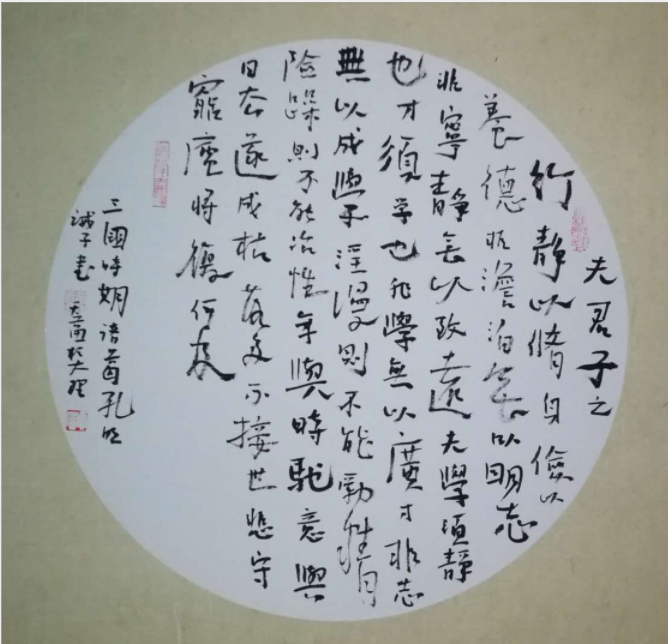 夫君子之
行靜以脩身儉以
養德非澹泊無以明志
非寧靜無以致遠夫學須靜
也才須学也非學無以廣才非志
無以成學淫漫則不能勵
險躁則不能冶性年與時馳意與
日去遂成枯落多不接世悲守
窮廬將復何及
三國時期诸葛孔明
誡子書 於大理